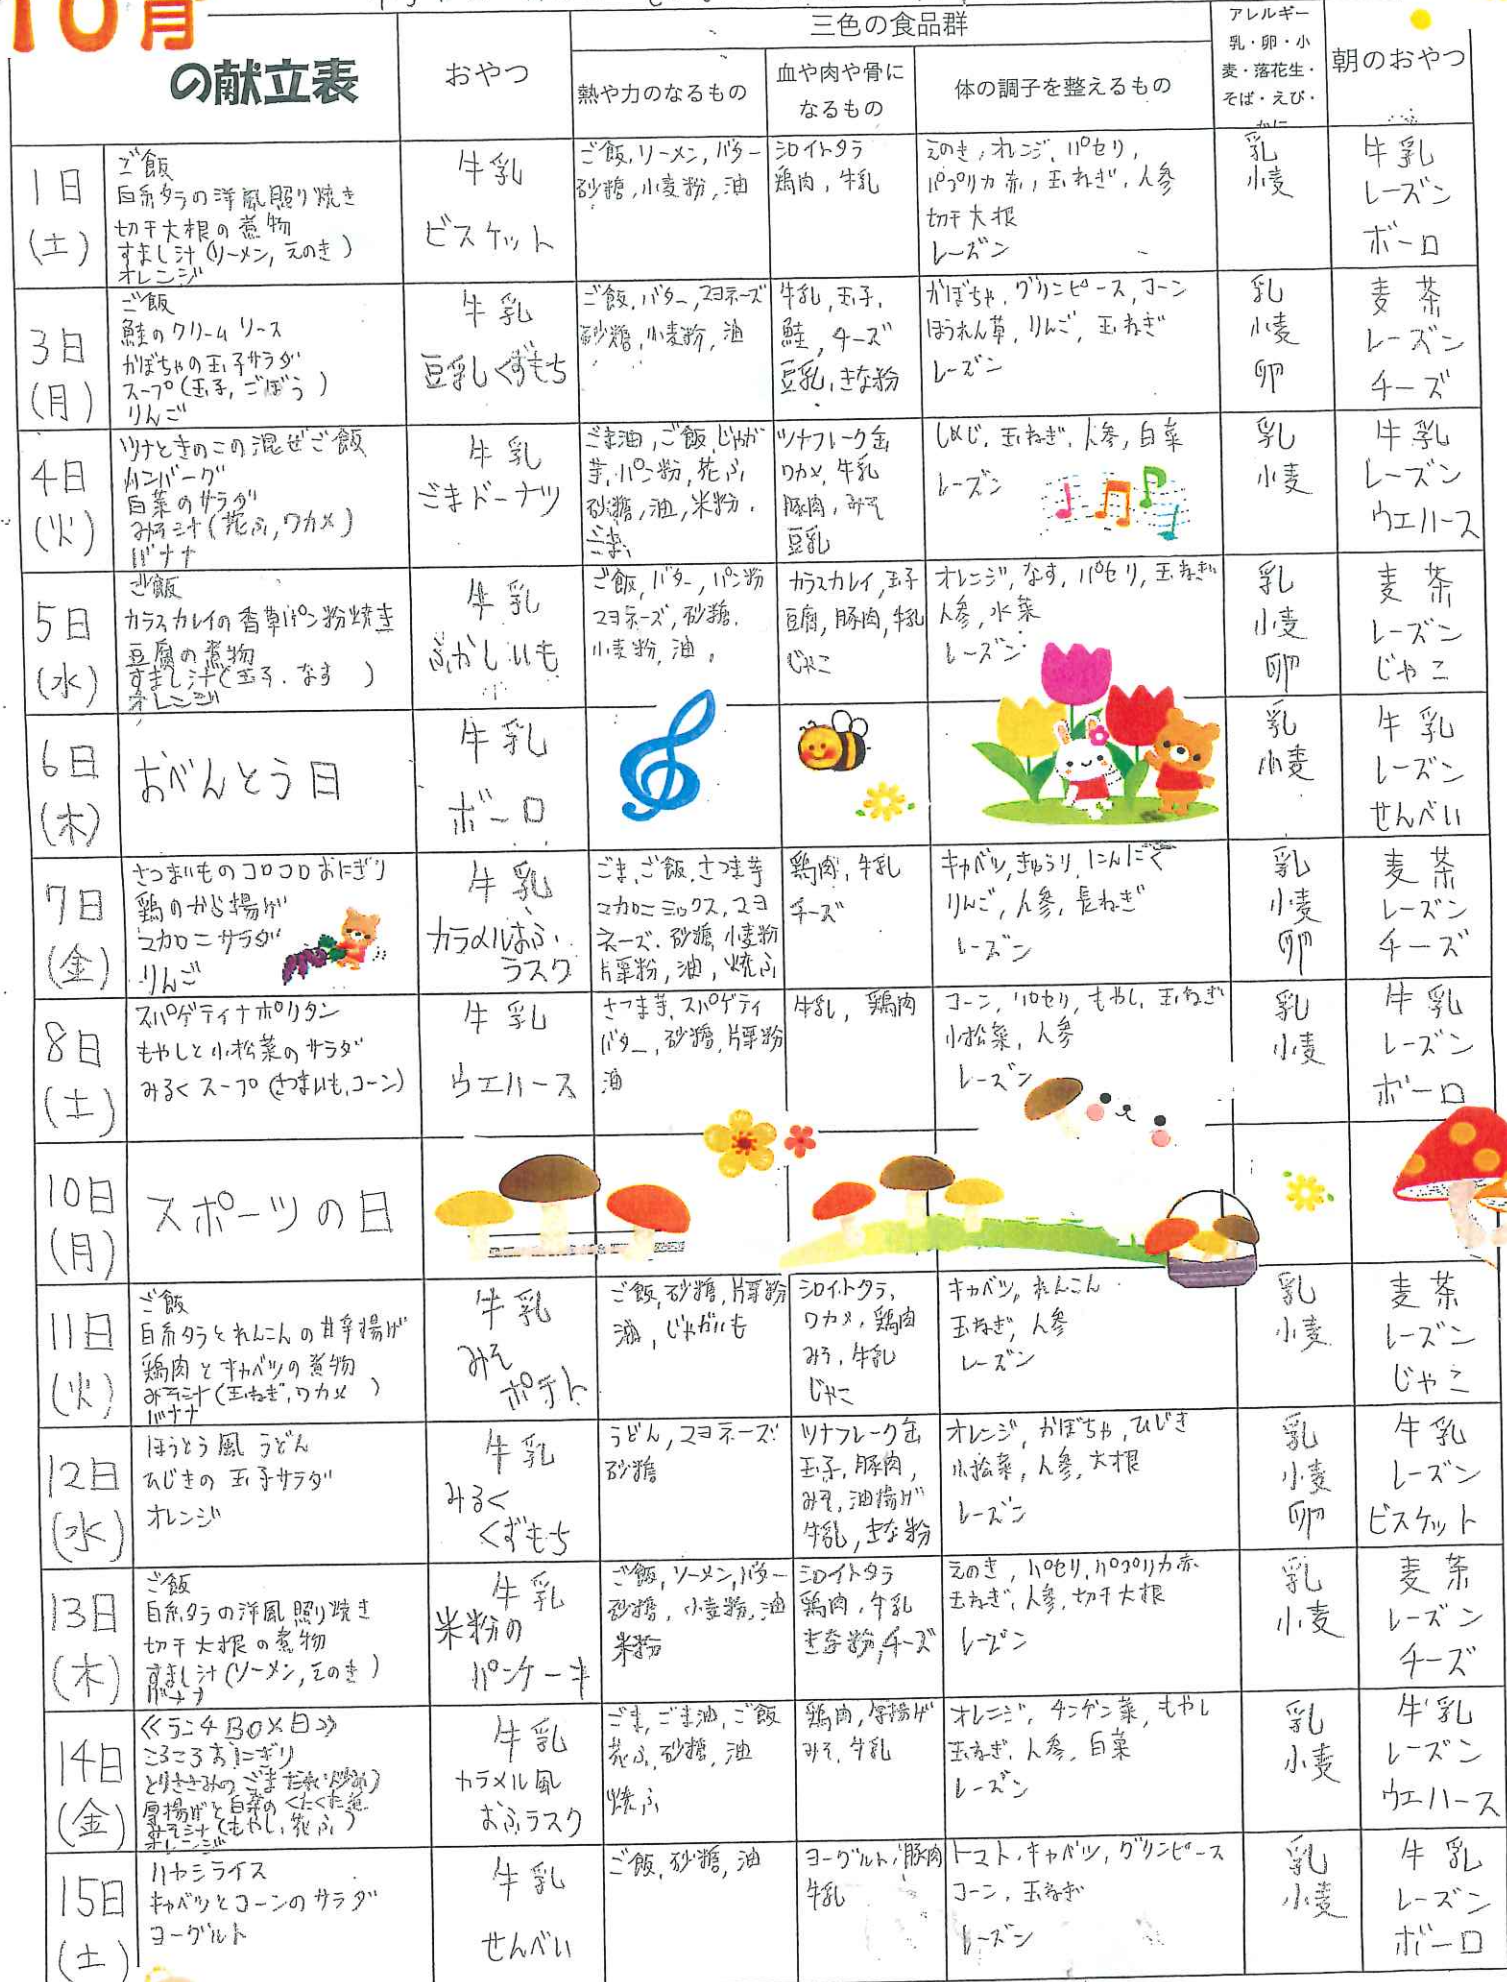 10月
の献立表
おやつ
三色の食品群
熱や力のなるもの
血や肉や骨に
なるもの
体の調子を整えるもの
アレルギー
乳・卵・小
麦・落花生・
そば・えび・
かに
朝のおやつ
1日
(土)
ご飯
白糸タラの洋風照り焼き
切干大根の煮物
すまし汁(ソーメン,えのき)
オレンジ
牛乳
ビスケット
ご飯,ソーメン,バター
砂糖,小麦粉,油
シロイトタラ
鶏肉,牛乳
えのき,オレンジ,パセリ,
パプリカ赤,玉ねぎ,人参
切干大根
レーズン
乳
小麦
牛乳
レーズン
ボーロ
3日
(月)
ご飯
鮭のクリームソース
かぼちゃの玉子サラダ
スープ(玉子,ごぼう)
りんご
牛乳
豆乳くずもち
ご飯,バター,マヨネーズ
砂糖,小麦粉,油
牛乳,玉子,
鮭,チーズ
豆乳,きな粉
かぼちゃ,グリンピース,コーン
ほうれん草,りんご,玉ねぎ
レーズン
乳
小麦
卵
麦茶
レーズン
チーズ
4日
(火)
ツナときのこの混ぜご飯
ハンバーグ
白菜のサラダ
みそ汁(花ふ,ワカメ)
バナナ
牛乳
ごまドーナツ
ごま油,ご飯,じゃが
芋,パン粉,花ふ
砂糖,油,米粉,
ごま
ツナフレーク缶
ワカメ,牛乳
豚肉,みそ
豆乳
しめじ,玉ねぎ,人参,白菜
レーズン
乳
小麦
牛乳
レーズン
ウエハース
5日
(水)
ご飯
カラスカレイの香草パン粉焼き
豆腐の煮物
すまし汁(玉子,なす)
オレンジ
牛乳
ふかしいも
ご飯,バター,パン粉
マヨネーズ,砂糖,
小麦粉,油
カラスカレイ,玉子
豆腐,豚肉,牛乳
じゃこ
オレンジ,なす,パセリ,玉ねぎ
人参,水菜
レーズン
乳
小麦
卵
麦茶
レーズン
じゃこ
6日
(木)
おべんとう日
牛乳
ボーロ
乳
小麦
牛乳
レーズン
せんべい
7日
(金)
さつまいものコロコロおにぎり
鶏のから揚げ
マカロニサラダ
りんご
牛乳
カラメルおふ
ラスク
ごま,ご飯,さつま芋
マカロニミックス,マヨ
ネーズ,砂糖,小麦粉
片栗粉,油,焼ふ
鶏肉,牛乳
チーズ
キャベツ,きゅうり,にんにく
りんご,人参,長ねぎ
レーズン
乳
小麦
卵
麦茶
レーズン
チーズ
8日
(土)
スパゲティナポリタン
もやしと小松菜のサラダ
みるくスープ(さつまいも,コーン)
牛乳
ウエハース
さつま芋,スパゲティ
バター,砂糖,片栗粉
油
牛乳,鶏肉
コーン,パセリ,もやし,玉ねぎ
小松菜,人参
レーズン
乳
小麦
牛乳
レーズン
ボーロ
10日
(月)
スポーツの日
11日
(火)
ご飯
白糸タラとれんこんの甘辛揚げ
鶏肉とキャベツの煮物
みそ汁(玉ねぎ,ワカメ)
バナナ
牛乳
みそ
ポテト
ご飯,砂糖,片栗粉
油,じゃがいも
シロイトタラ,
ワカメ,鶏肉
みそ,牛乳
じゃこ
キャベツ,れんこん
玉ねぎ,人参
レーズン
乳
小麦
麦茶
レーズン
じゃこ
12日
(水)
ほうとう風うどん
ひじきの玉子サラダ
オレンジ
牛乳
みるく
くずもち
うどん,マヨネーズ
砂糖
ツナフレーク缶
玉子,豚肉,
みそ,油揚げ
牛乳,きな粉
オレンジ,かぼちゃ,ひじき
小松菜,人参,大根
レーズン
乳
小麦
卵
牛乳
レーズン
ビスケット
13日
(木)
ご飯
白糸タラの洋風照り焼き
切干大根の煮物
すまし汁(ソーメン,えのき)
バナナ
牛乳
米粉の
パンケーキ
ご飯,ソーメン,バター
砂糖,小麦粉,油
米粉
シロイトタラ
鶏肉,牛乳
きな粉,チーズ
えのき,パセリ,パプリカ赤
玉ねぎ,人参,切干大根
レーズン
乳
小麦
麦茶
レーズン
チーズ
14日
(金)
≪ランチBOX日≫
ころころおにぎり
とりささみのごまだれ
厚揚げと白菜のくたくた煮
みそ汁(もやし,花ふ)
オレンジ
牛乳
カラメル風
おふラスク
ごま,ごま油,ご飯
花ふ,砂糖,油
焼ふ
鶏肉,厚揚げ
みそ,牛乳
オレンジ,チンゲン菜,もやし
玉ねぎ,人参,白菜
レーズン
乳
小麦
牛乳
レーズン
ウエハース
15日
(土)
ハヤシライス
キャベツとコーンのサラダ
ヨーグルト
牛乳
せんべい
ご飯,砂糖,油
ヨーグルト,豚肉
牛乳
トマト,キャベツ,グリンピース
コーン,玉ねぎ
レーズン
乳
小麦
牛乳
レーズン
ボーロ